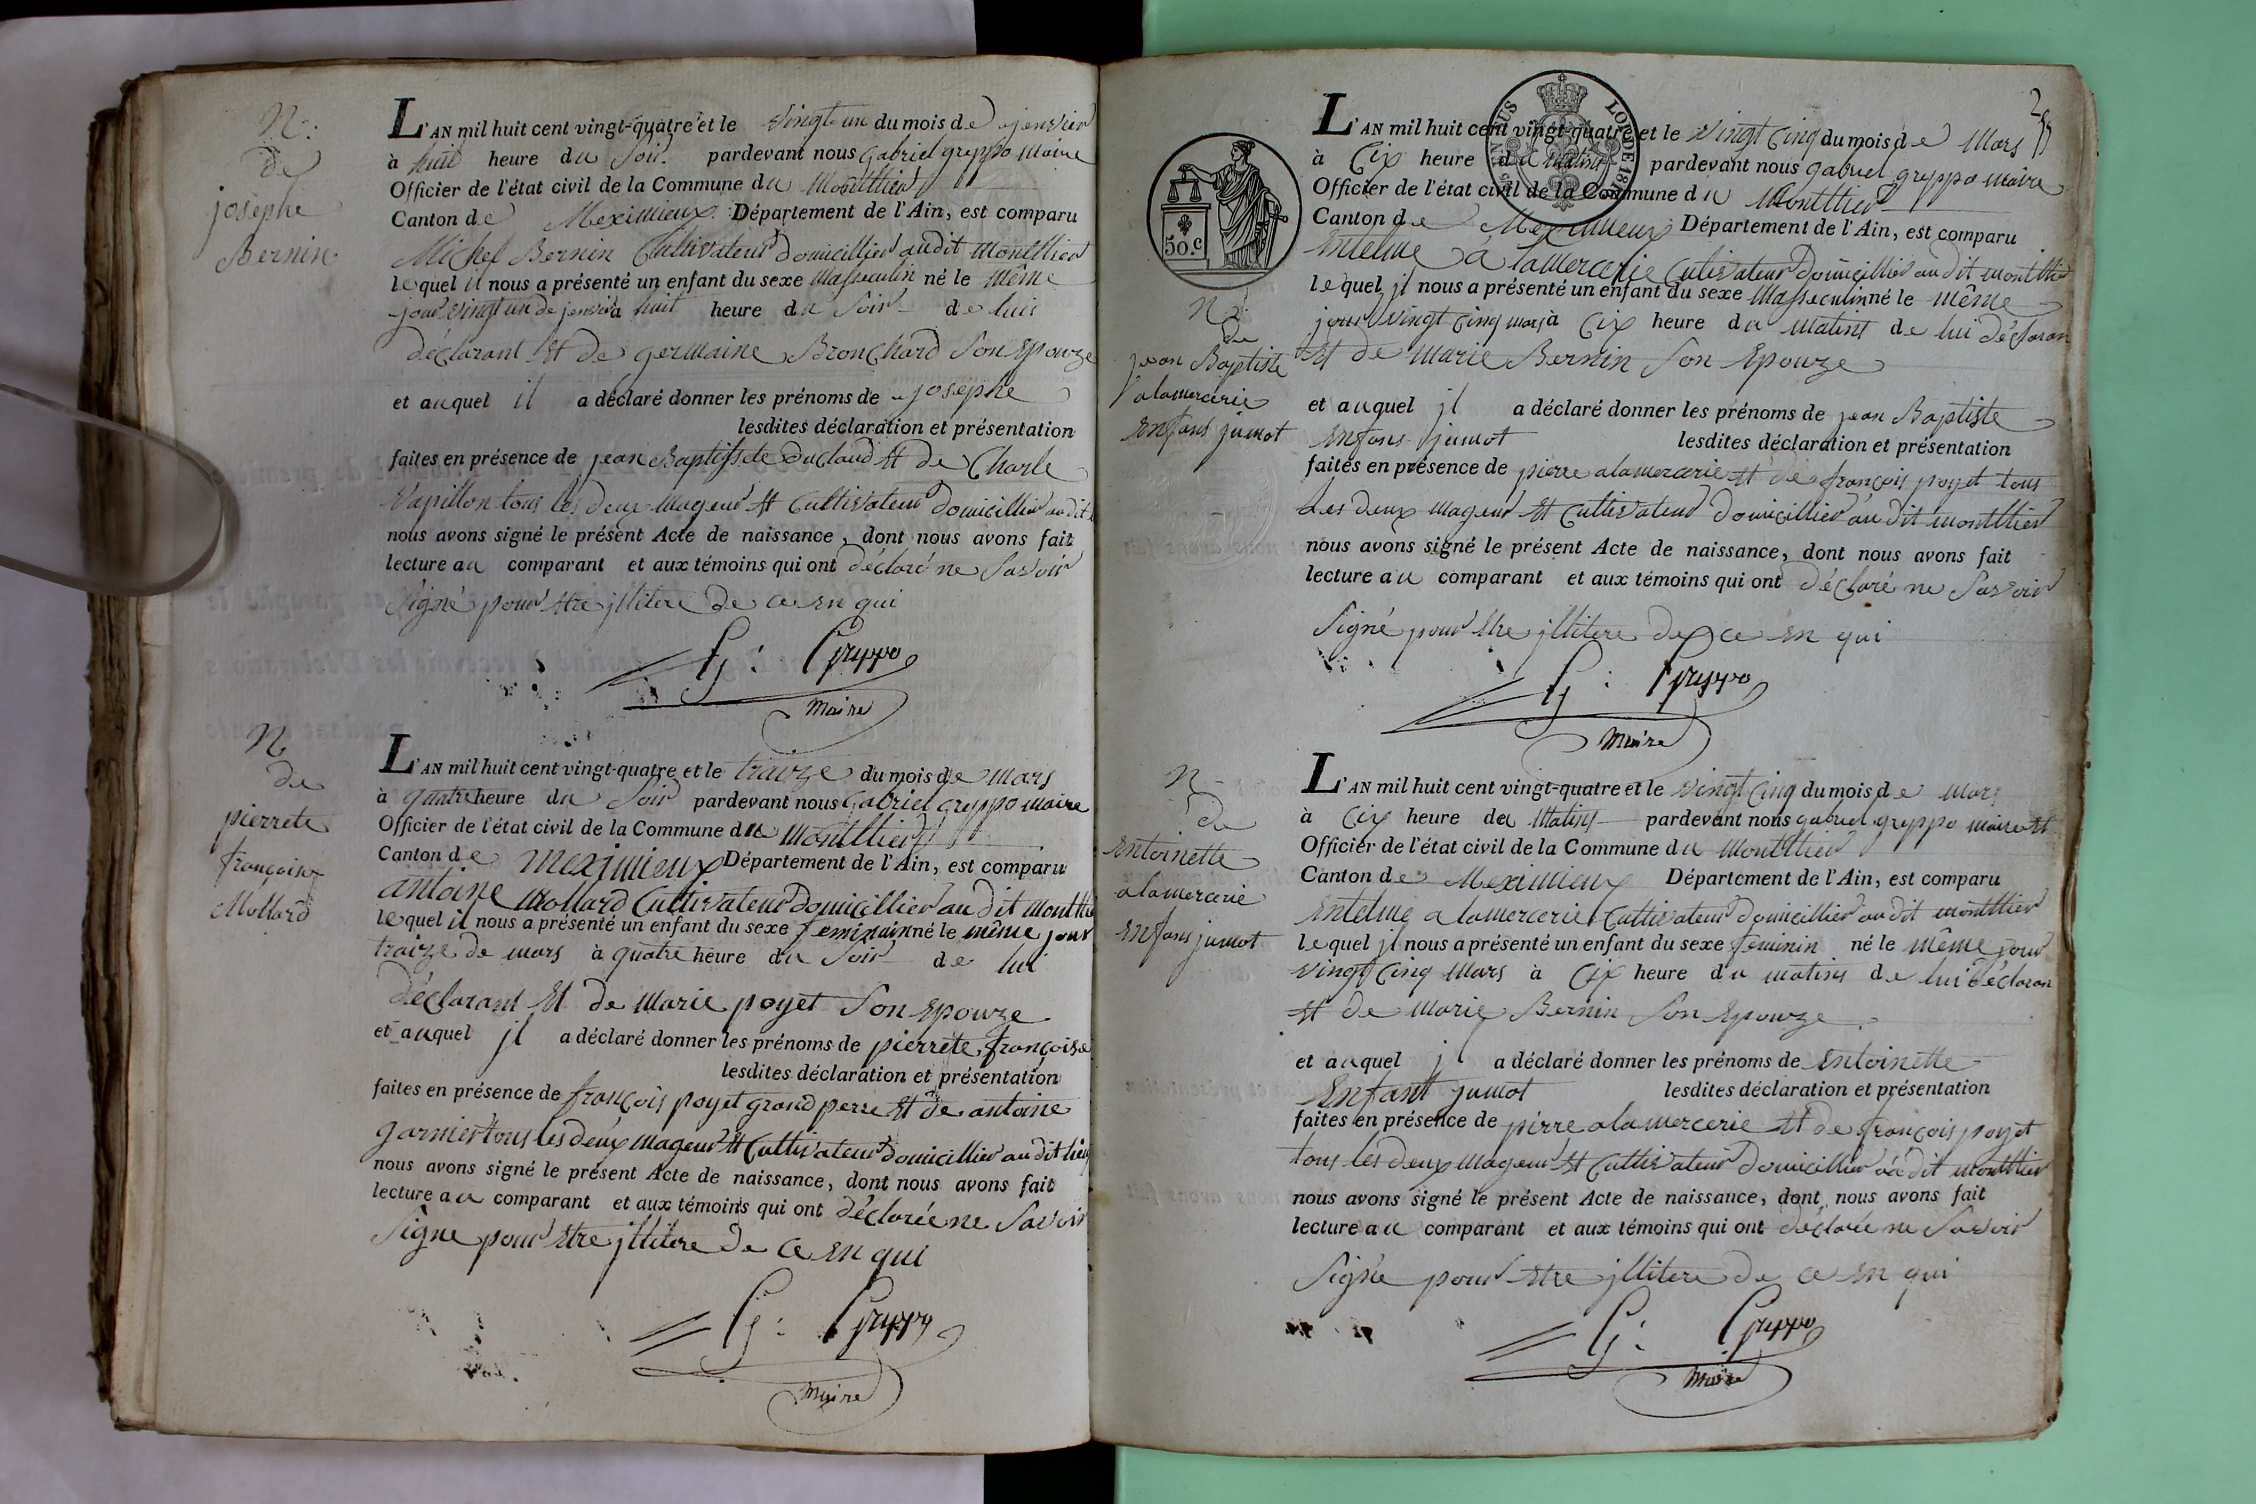 N.
de
josephe
Bernin
L'AN mil huit cent vingt-quatre et le vingt un du mois de jenvier
à huit heure du Soir. pardevant nous gabriel greppo maire
Officier de l'état civil de la Commune du Montllier
Canton de Meximieux Département de l'Ain, est comparu
Michel Bernin Cultivateur domicillier audit montllier
lequel il nous a présenté un enfant du sexe Masseculin né le même
jour vingt un de jenvier à huit heure du Soir de lui
déclarant Et de germaine Bronchard Son Epouze
et auquel il a déclaré donner les prénoms de josephe
lesdites déclaration et présentation
faites en présence de jean Baptisste Duclaud Et de Charle
Papillon tous les deux mageur Et Cultivateur domicillier audit
nous avons signé le présent Acte de naissance, dont nous avons fait
lecture au comparant et aux témoins qui ont déclaré ne Savoir
Signé pour Etre jllitere de ce En qui
G: Greppo
Maire
N
de
pierrete
françoise
Mollard
L'AN mil huit cent vingt-quatre et le traize du mois de mars
à quatre heure du Soir pardevant nous Gabriel Greppo maire
Officier de l'état civil de la Commune du Montllier
Canton de Meximieux Département de l'Ain, est comparu
antoine Mollard Cultivateur domicillier au dit montllier
lequel il nous a présenté un enfant du sexe feminain né le même jour
traize de mars à quatre heure du Soir de lui
déclarant Et de Marie poyet Son Epouze
et auquel jl a déclaré donner les prénoms de pierrete, françoise
lesdites déclaration et présentation
faites en présence de françois poyet grand perre Et de antoine
garnier tous les deux mageur Et Cultivateur domicillier au dit lieu
nous avons signé le présent Acte de naissance, dont nous avons fait
lecture au comparant et aux témoins qui ont déclarée ne Savoir
Signe pour Etre jllitere de ce En qui
G: Greppo
Maire
LOI DE 18
50.c
N.
de
jean Baptiste
alamercerie
Enfans jumot
L'AN mil huit cent vingt-quatre et le vingt Cinq du mois de Mars
à Cix heure du matins pardevant nous gabriel greppo maire
Officier de l'état civil de la Commune du Montllier
Canton de Meximieux Département de l'Ain, est comparu
Entelme à lamercerie Cultivateur domicillier au dit montllier
lequel jl nous a présenté un enfant du sexe Masseculin né le même
jour vingt Cinq mars à Cix heure du matins de lui déclaran
Et de marie Bernin Son Epouze
et auquel jl a déclaré donner les prénoms de jean Baptiste
Enfans jumot lesdites déclaration et présentation
faites en présence de pierre alamercerie Et de françois poyet tous
Les deux mageur Et Cultivateur domicillier au dit montllier
nous avons signé le présent Acte de naissance, dont nous avons fait
lecture au comparant et aux témoins qui ont déclaré ne Savoir
Signé pour Etre jllitere de ce En qui
G: Greppo
Maire
N
de
Entoinette
alamercerie
Enfans jumot
L'AN mil huit cent vingt-quatre et le vingt Cinq du mois de Mars
à Cix heure du Matins pardevant nous gabriel greppo maire Et
Officier de l'état civil de la Commune du Montllier
Canton de Meximieux Département de l'Ain, est comparu
Entelme a lamercerie Cultivateur domicillier au dit montllier
lequel jl nous a présenté un enfant du sexe feminin né le même jour
vingt Cinq Mars à Cix heure du matins de lui déclaran
Et de Marie Bernin Son Epouze
et auquel jl a déclaré donner les prénoms de Entoinette
Enfant jumot lesdites déclaration et présentation
faites en présence de pirre alamercerie Et de françois poyet
tous les deux mageur Et Cultivateur domicillier au dit montllier
nous avons signé le présent Acte de naissance, dont nous avons fait
lecture au comparant et aux témoins qui ont déclarée ne Savoir
Signé pour Etre jllitere de ce En qui
G: Greppo
Maire